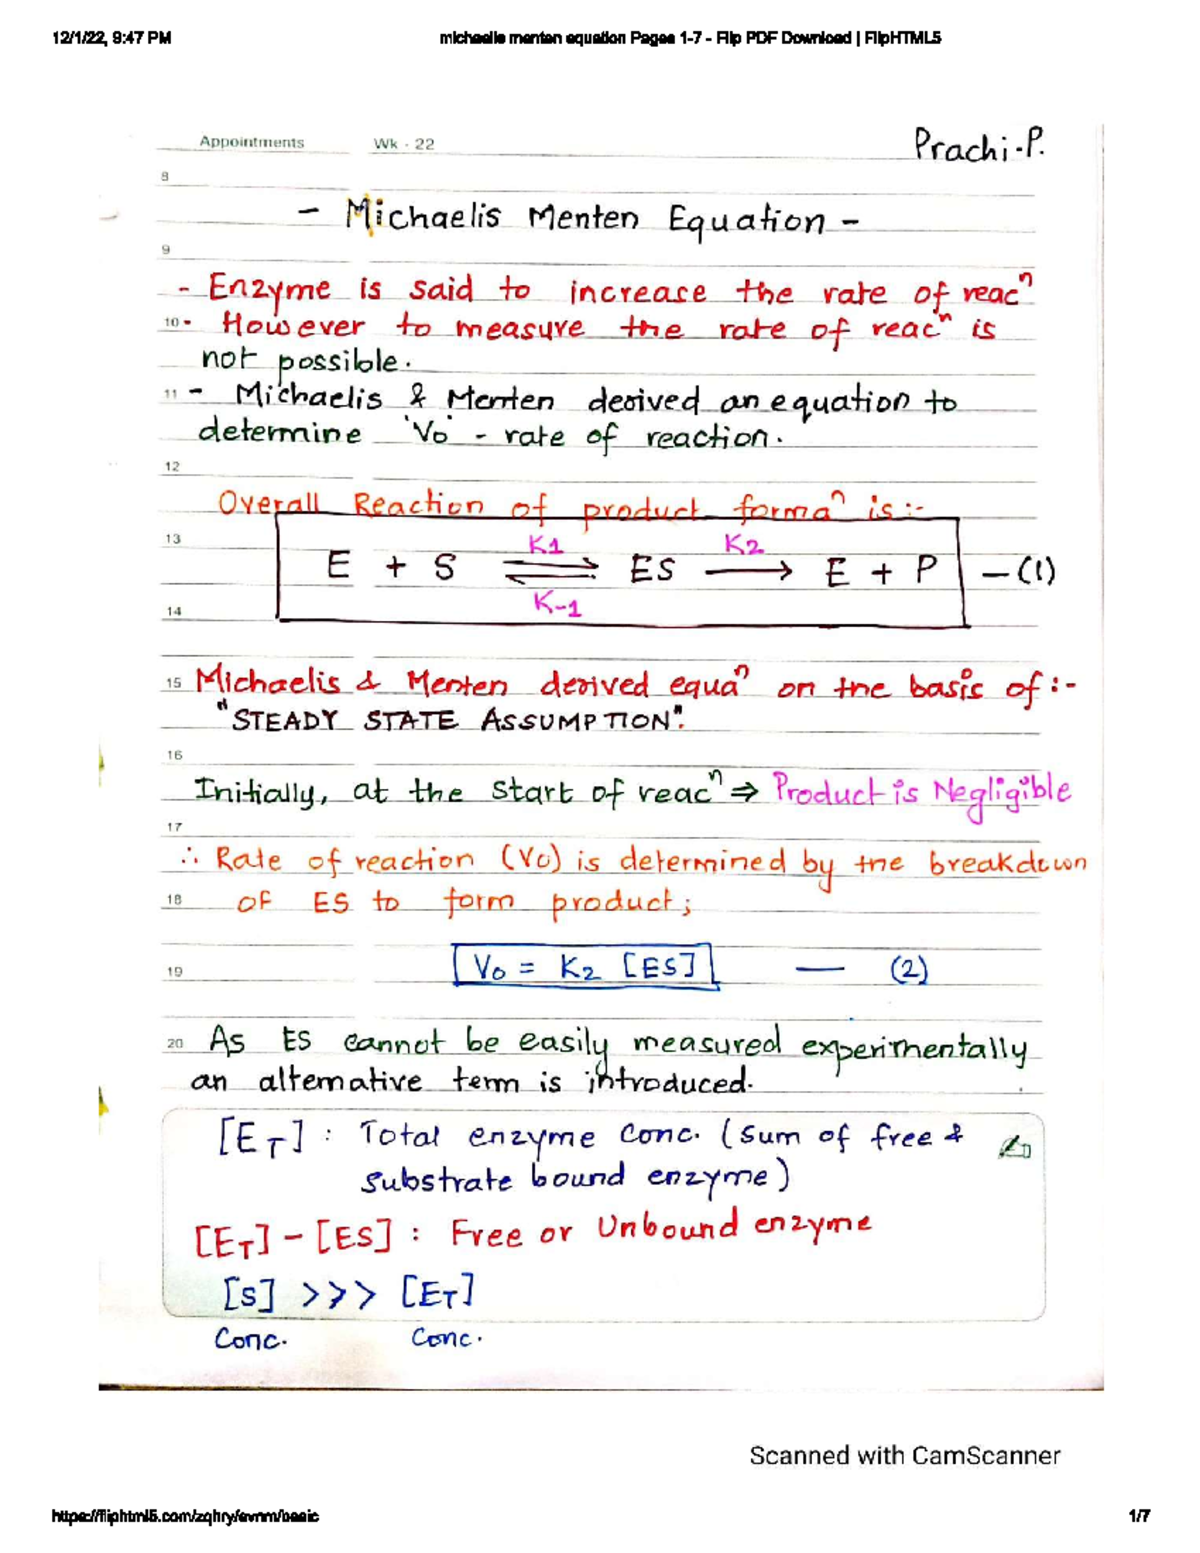 12/1/22, 9:47 PM michaelis menten equation Pages 1-7 - Flip PDF Download | FlipHTML5
Appointments Wk - 22 Prachi.P.
8
- Michaelis Menten Equation -
9
- Enzyme is said to increase the rate of reacⁿ
10 - However to measure the rate of reacⁿ is
not possible.
11 - Michaelis & Menten derived an equation to
determine 'Vo' - rate of reaction.
12
Overall Reaction of product formaⁿ is :-
13 K1 K2
E + S ⇌ ES → E + P — (1)
14 K-1
15 Michaelis & Menten derived equaⁿ on the basis of :-
"STEADY STATE ASSUMPTION".
16
Initially, at the start of reacⁿ ⇒ Product is Negligible
17
∴ Rate of reaction (Vo) is determined by the breakdown
18 of ES to form product;
19 Vo = K2 [ES] — (2)
20 As ES cannot be easily measured experimentally
an alternative term is introduced.
[ET] : Total enzyme conc. (sum of free &
substrate bound enzyme)
[ET] - [ES] : Free or Unbound enzyme
[S] >>> [ET]
Conc. Conc.
Scanned with CamScanner
https://fliphtml5.com/zqhry/evnm/basic 1/7